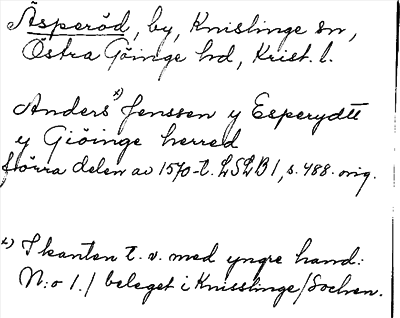 Äsperöd, by, Knislinge sn,
Östra Göinge hd, Krist. l.
Anders x) Jenssen y Esperydtt
y Giöinge herred
Större delen av 1570-t. LSLB 1, s. 488. orig.
x) I kanten t. v. med yngre hand:
N:o 1./ beleget i Knisslinge/Sochen.